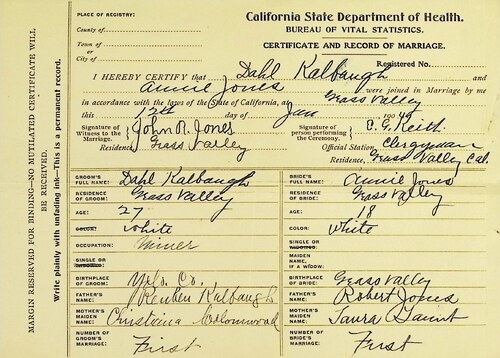 PLACE OF REGISTRY:
County of
Town of
or
City of
California State Department of Health.
BUREAU OF VITAL STATISTICS.
CERTIFICATE AND RECORD OF MARRIAGE.
Registered No.
I HEREBY CERTIFY that Dahl Kalbaugh and
Annie Jones were joined in Marriage by me
in accordance with the laws of the State of California, at Grass Valley
this 12th day of Jan 190
Signature of Witness to the Marriage, John R. Jones
Residence, Grass Valley
Signature of person performing the Ceremony. C. G. Keith.
Official Station, Clergyman
Residence, Grass Valley Cal.
GROOM'S FULL NAME: Dahl Kalbaugh
RESIDENCE OF GROOM: Grass Valley
AGE: 27
COLOR: White
OCCUPATION: Miner
SINGLE OR WIDOWED:
BIRTHPLACE OF GROOM: Yolo Co.
FATHER'S NAME: Reuben Kalbaugh
MOTHER'S MAIDEN NAME: Christeina
NUMBER OF GROOM'S MARRIAGE: First
BRIDE'S FULL NAME: Annie Jones
RESIDENCE OF BRIDE: Grass Valley
AGE: 18
COLOR: White
SINGLE OR WIDOWED:
MAIDEN NAME, IF A WIDOW:
BIRTHPLACE OF BRIDE: Grass Valley
FATHER'S NAME: Robert Jones
MOTHER'S MAIDEN NAME: Laura Gaunt
NUMBER OF BRIDE'S MARRIAGE: First
MARGIN RESERVED FOR BINDING—NO MUTILATED CERTIFICATE WILL
BE RECEIVED.
Write plainly with unfading ink—This is a permanent record.